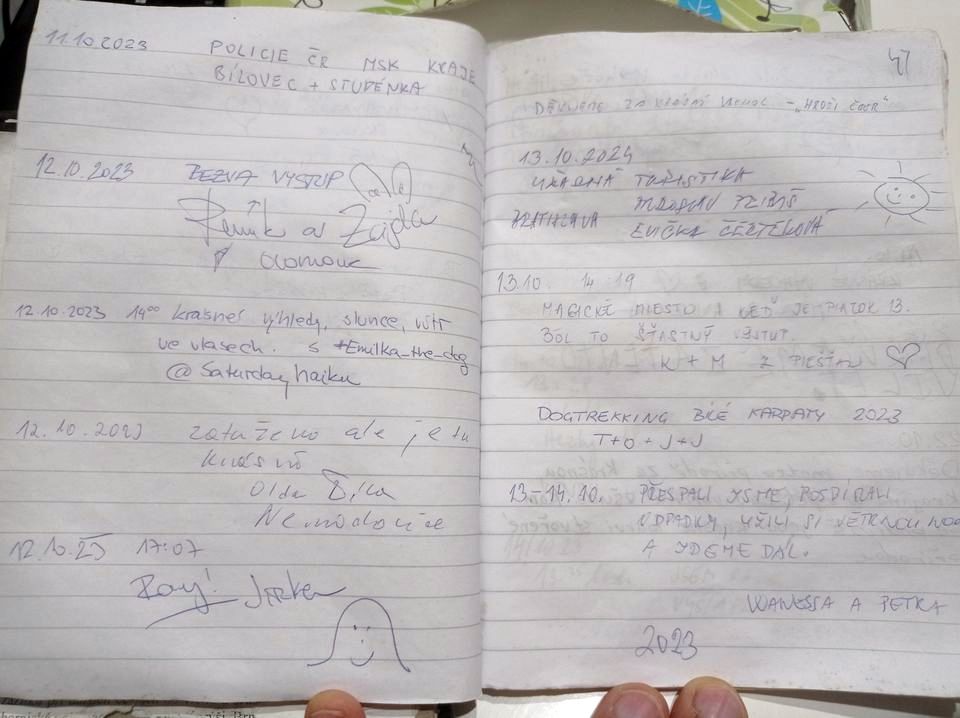 11.10.2023 POLICIE ČR MSK KRAJE
BÍLOVEC + STUDÉNKA
12.10.2023 BEZVA VÝSTUP
a Zajda
Olomouc
12.10.2023 14⁰⁰ krásné výhledy, slunce, vítr
ve vlasech. s #Emilka_the_dog
@Saturdayhaiku
12.10.2023 zataženo ale je tu
krásně
Olda
12.10.23 17:07
Jirka
47
DĚKUJEME ZA KRÁSNÝ - „HROŠÍ
13.10.2024
TURISTIKA
BRATISLAVA
EVIČKA
13.10. 14:19
MAGICKÉ MIESTO A KEĎ JE PIATOK 13.
BOL TO ŠŤASTNÝ VÝSTUP
K + M Z PIEŠŤAN
DOGTREKKING BÍLÉ KARPATY 2023
T+O+J+J
13-14.10. PŘESPALI JSME, POSBÍRALI
ODPADKY, UŽILI SI VĚTRNOU NOC
A JDEME DÁL.
WANESSA A PETRA
2023